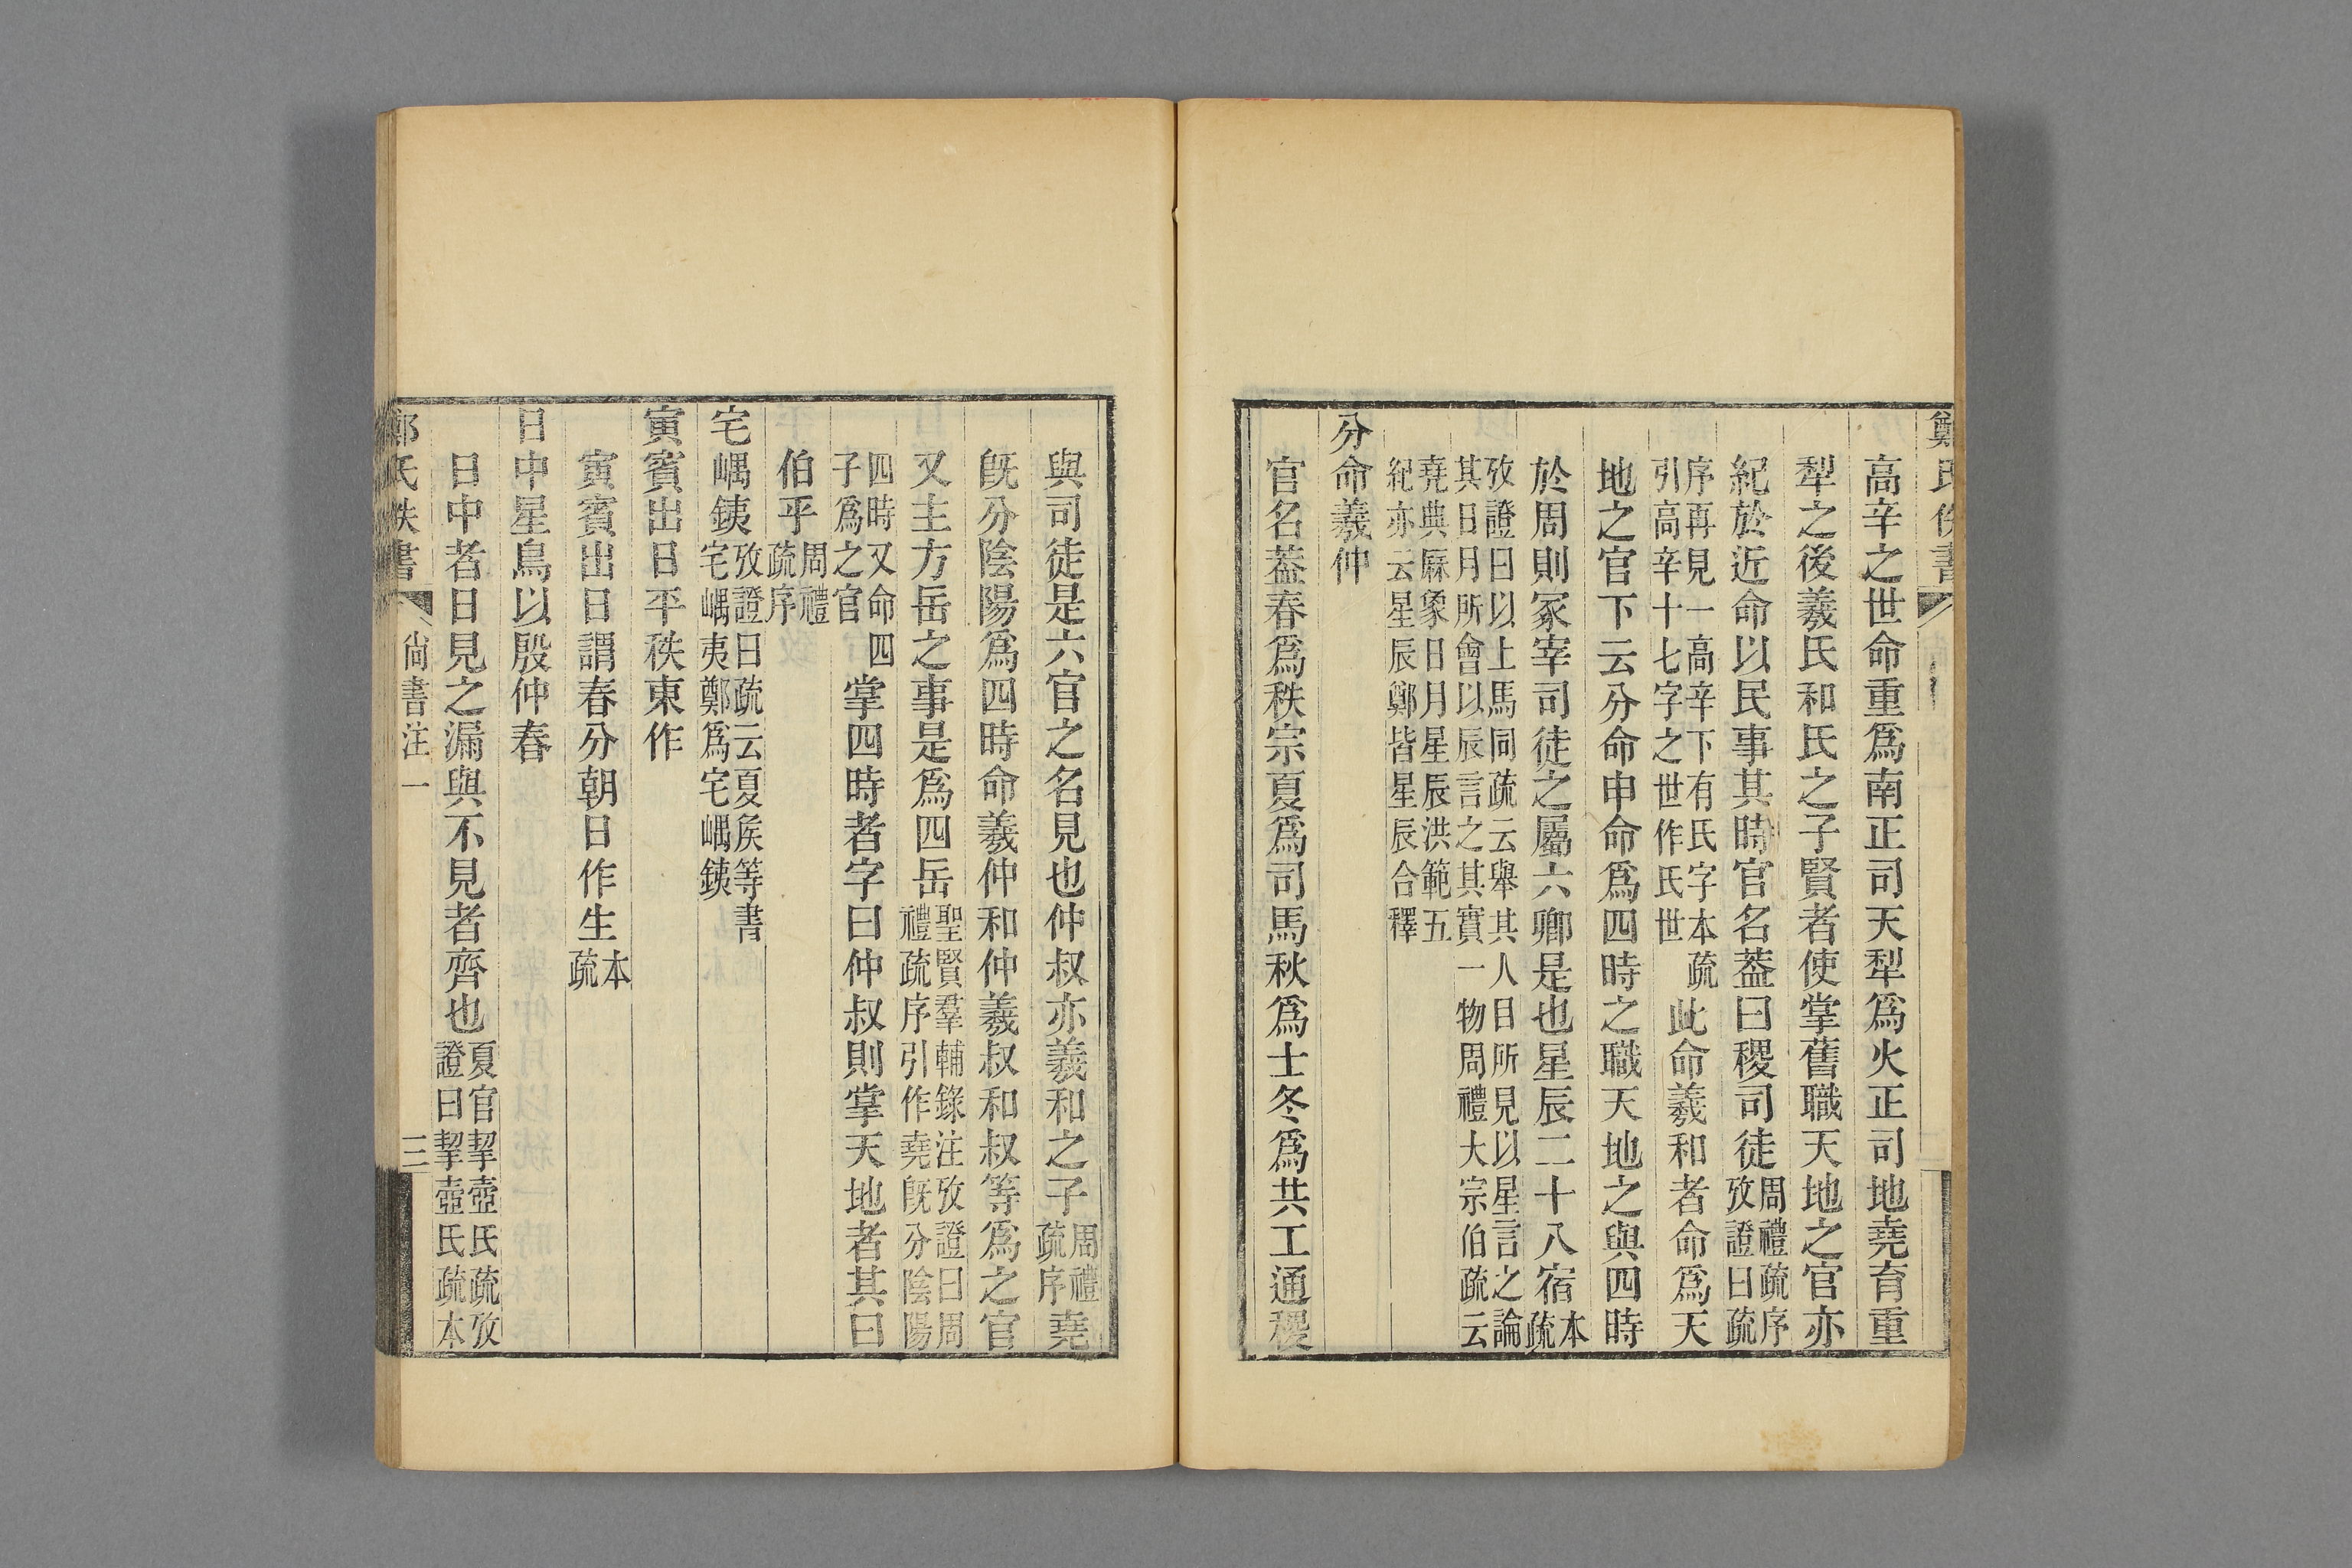 鄭氏佚書
高辛之世命重爲南正司天犁爲火正司地堯育重
犁之後羲氏和氏之子賢者使掌舊職天地之官亦
紀於近命以民事其時官名葢曰稷司徒周禮疏序攷證曰疏
序再見一高辛下有氏字本疏引高辛十七字之世作氏世此命羲和者命爲天
地之官下云分命申命爲四時之職天地之與四時
於周則冢宰司徒之屬六卿是也星辰二十八宿本疏
攷證曰以上馬同疏云舉其人目所見以星言之論其日月所會以辰言之其實一物周禮大宗伯疏云
堯典厤象日月星辰洪範五紀亦云星辰鄭皆星辰合釋
分命羲仲
官名葢春爲秩宗夏爲司馬秋爲士冬爲共工通稷
與司徒是六官之名見也仲叔亦羲和之子周禮疏序堯
旣分陰陽爲四時命羲仲和仲羲叔和叔等爲之官
又主方岳之事是爲四岳聖賢羣輔錄注攷證曰周禮疏序引作堯旣分陰陽
四時又命四子爲之官掌四時者字曰仲叔則掌天地者其曰
伯乎周禮疏序
宅嵎銕攷證曰疏云夏矦等書宅嵎夷鄭爲宅嵎銕
寅賓出日平秩東作
寅賓出日謂春分朝日作生本疏
日中星鳥以殷仲春
日中者日見之漏與不見者齊也夏官挈壺氏疏攷證曰挈壺氏疏本
鄭氏佚書 尙書注一 三